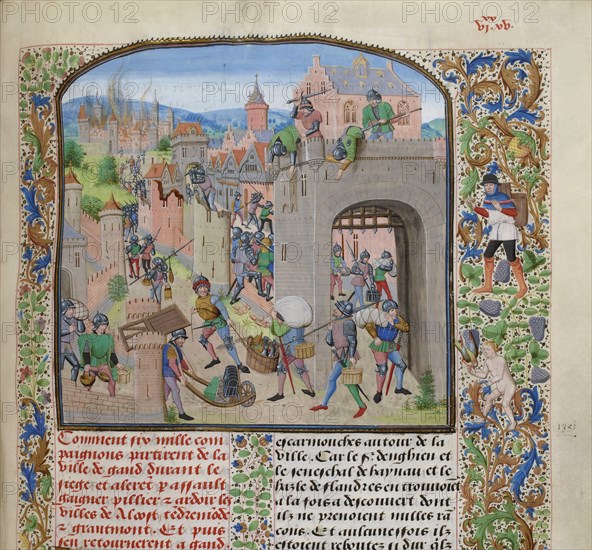 Comment six mille com
paignons partirent de la
ville de gand durant le
siege et alerent p assault
gaigner pillier & ardoir les
villes de Alost, tedremode
& grantmont. Et puis
sen retournerent a gand
escarmouches autour de la
ville. Car le sr denghien et
le seneschal de haynau et le
de flandres en trouuoiet
a la fois a descouuert dont
ilz ne prenoient nulles ra
cons. Et aulcunesfois ilz
estoient reboutez si dur qlz
PHOTO12